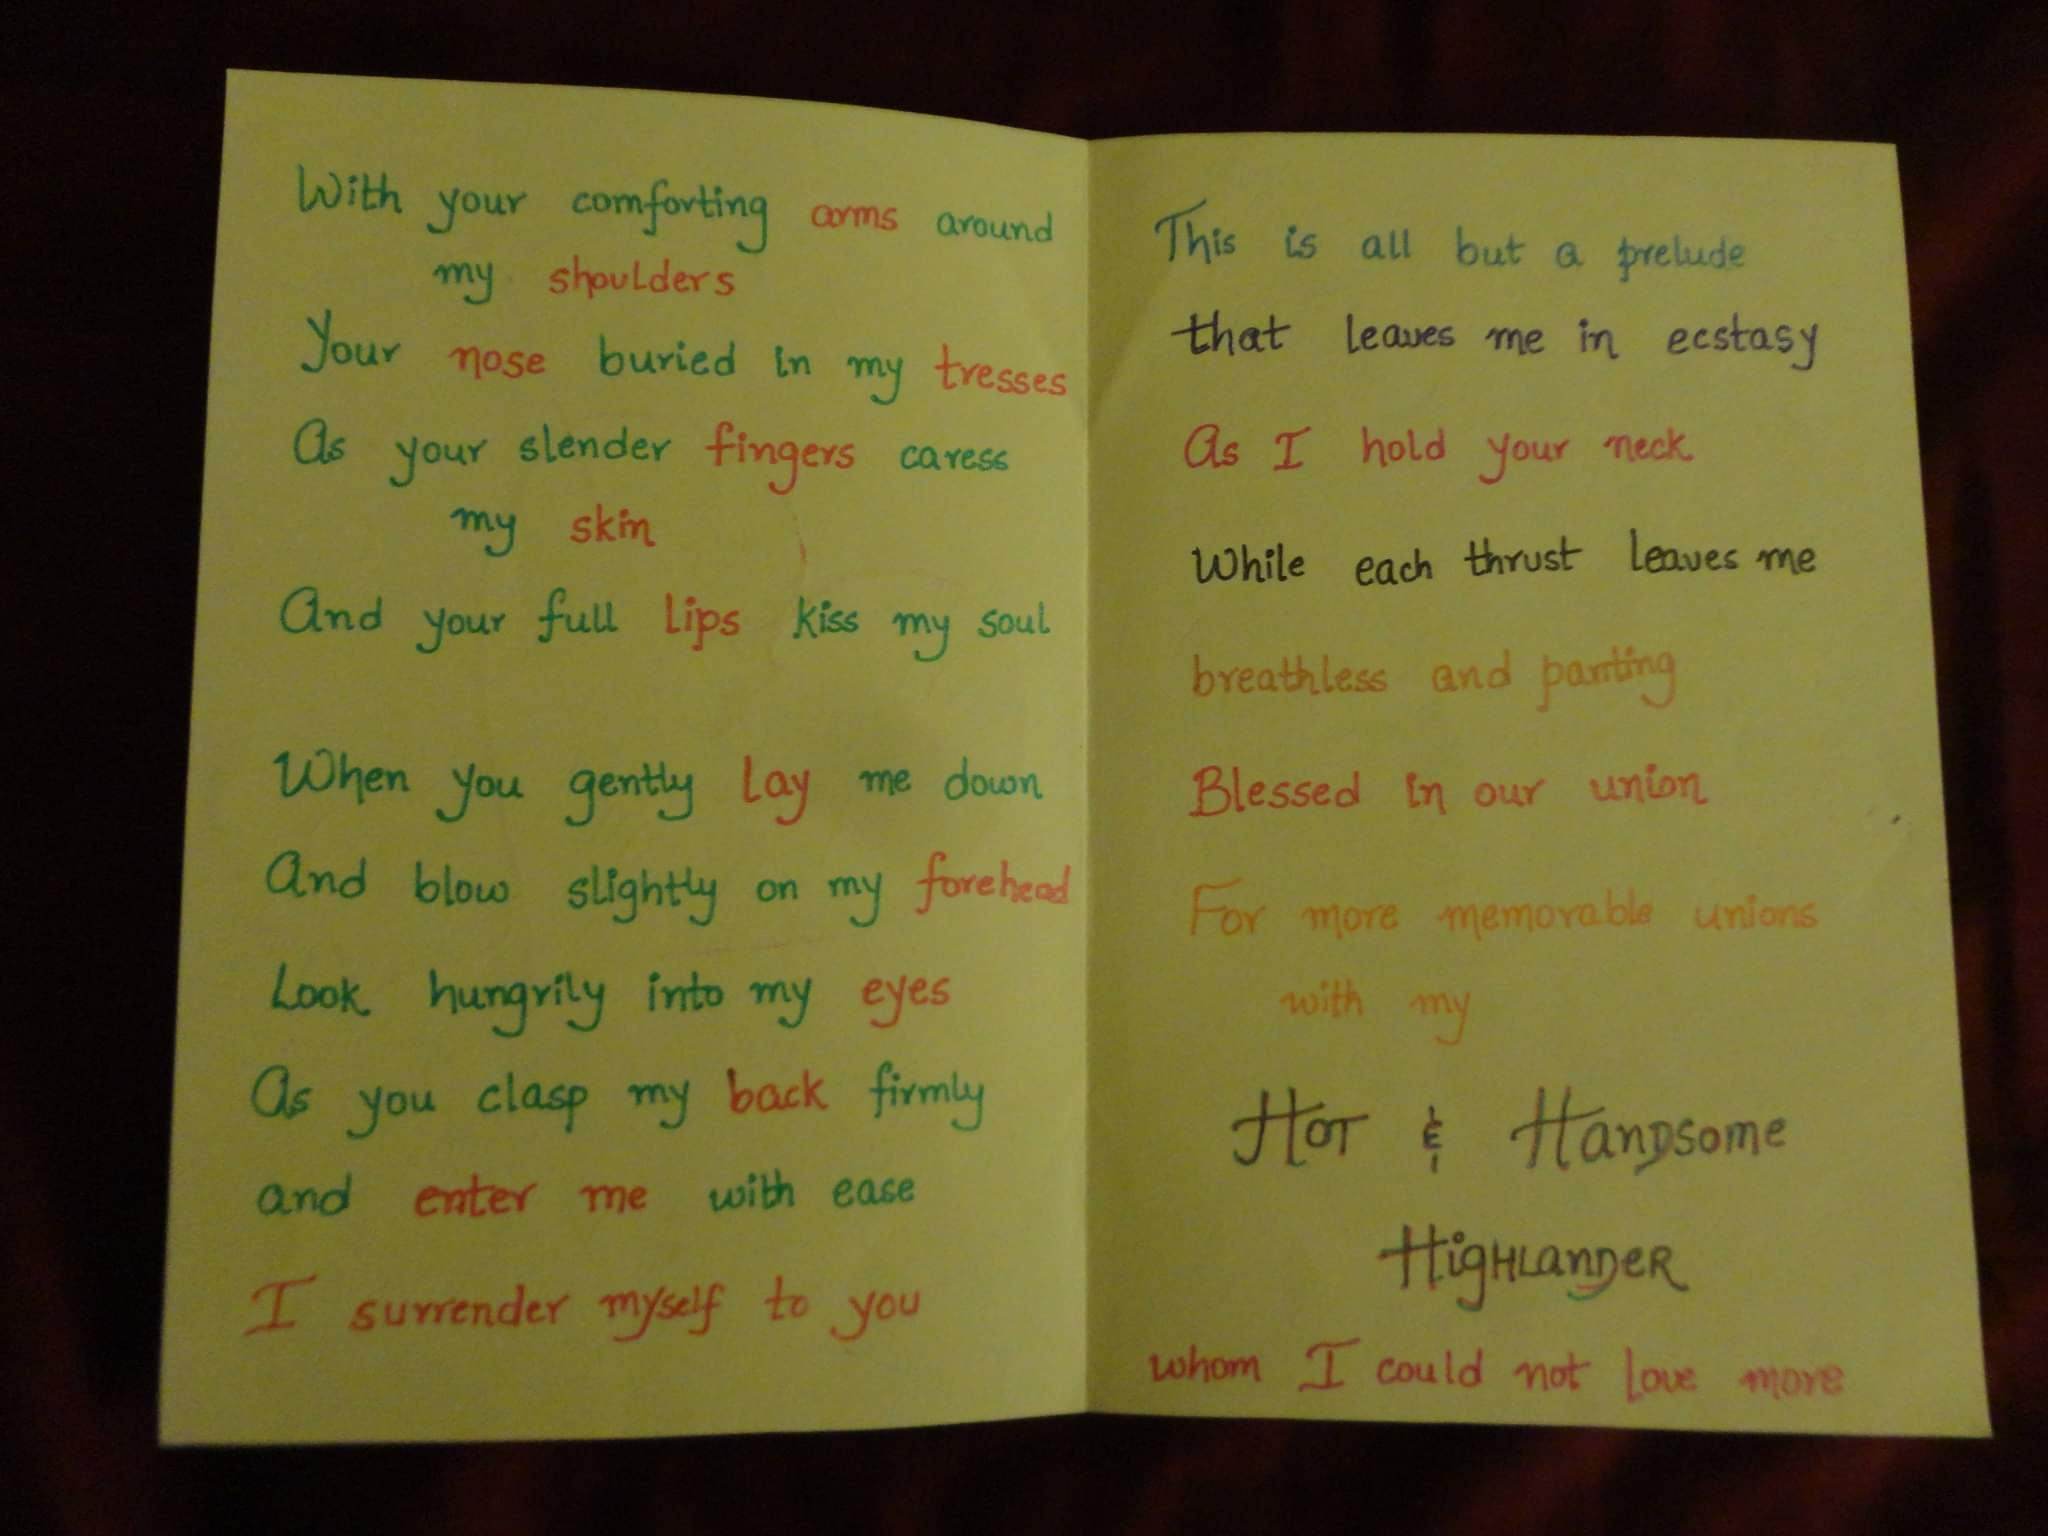 With your comforting arms around
my shoulders
Your nose buried in my tresses
As your slender fingers caress
my skin
And your full lips kiss my soul
When you gently lay me down
And blow slightly on my forehead
Look hungrily into my eyes
As you clasp my back firmly
and enter me with ease
I surrender myself to you
This is all but a prelude
that leaves me in ecstasy
As I hold your neck
While each thrust leaves me
breathless and panting
Blessed in our union
For more memorable unions
with my
HOT & HANDSOME
HIGHLANDER
whom I could not love more